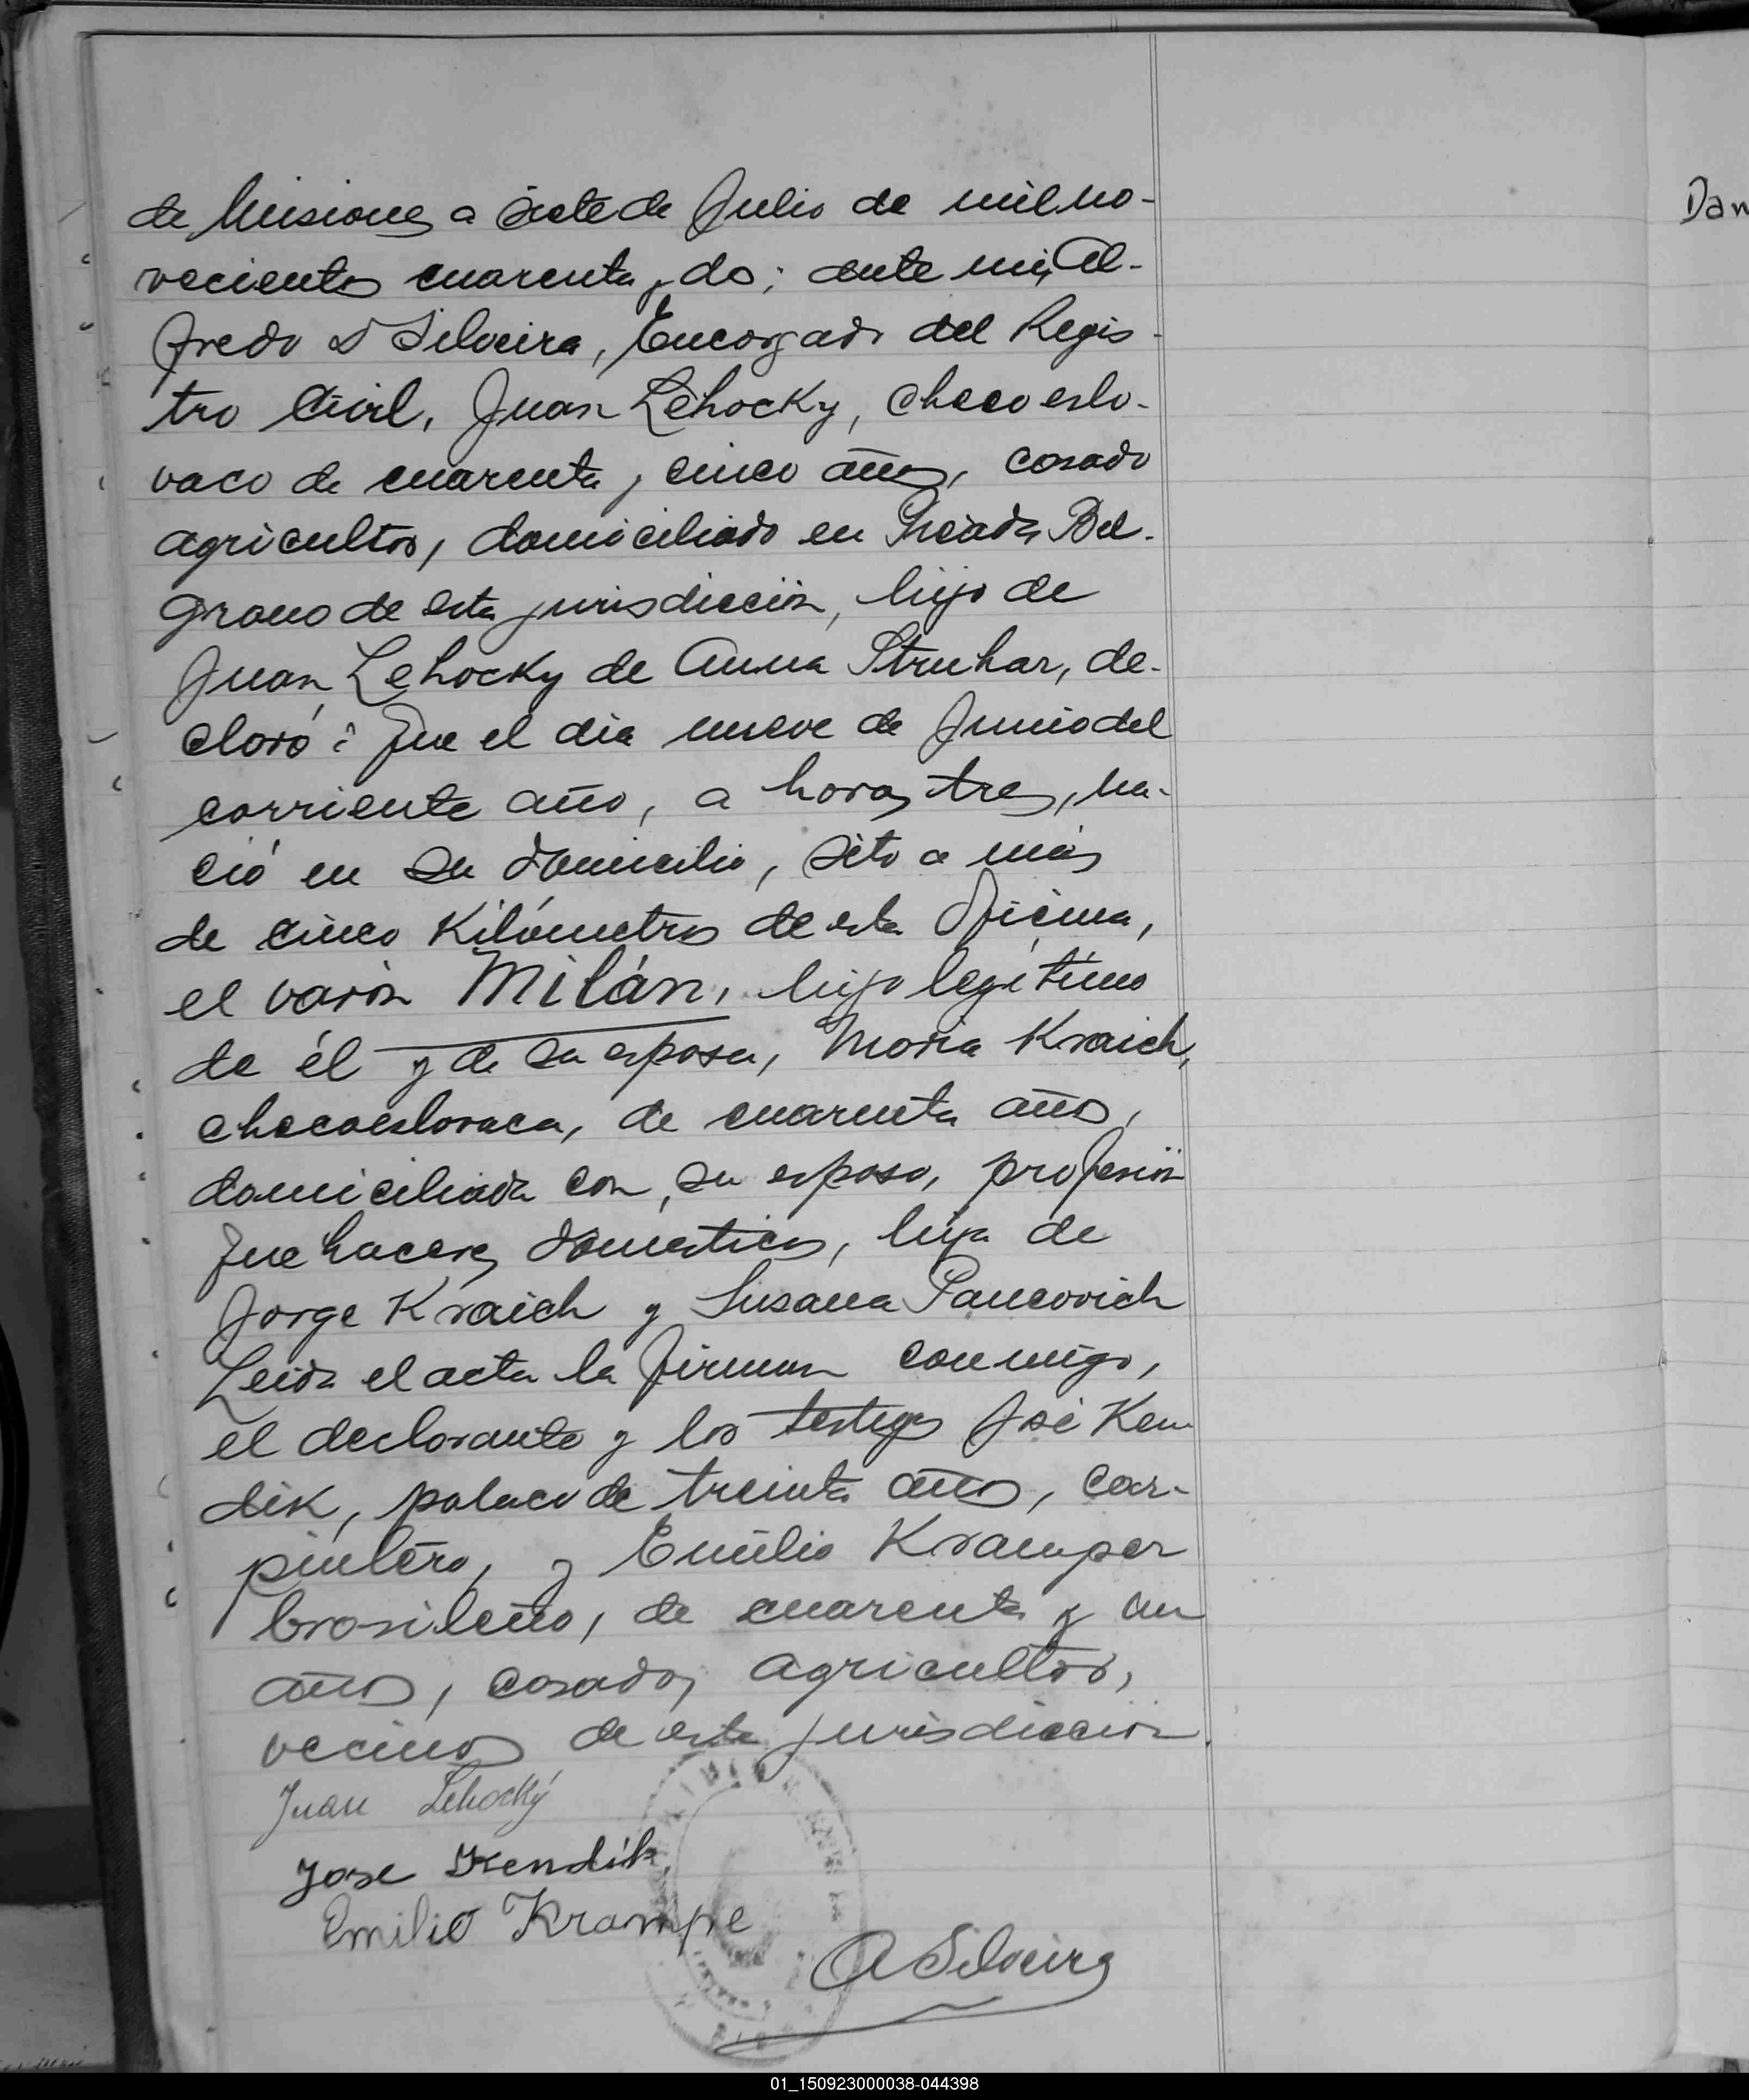 de Misiones a siete de Julio de mil no-
vecientos cuarenta y dos; ante mi, Al-
fredo D Silveira, Encargado del Regis-
tro Civil, Juan Lehocky, checoeslo-
vaco de cuarenta y cinco años, casado
agricultor, domiciliado en Picada Bel-
grano de esta jurisdicción, hijo de
Juan Lehocky de Anna Struhar, de-
claró: Que el dia nueve de Junio del
corriente año, a horas tres, na-
ció en su domicilio, sito a más
de cinco Kilómetros de esta Oficina,
el varón Milán, hijo legítimo
de él y de su esposa, Maria Kraich,
checoeslovaca, de cuarenta años,
domiciliada con su esposo, profesión
quehaceres domesticos, hija de
Jorge Kraich y Susana Pancovich
Leida el acta la firman conmigo,
el declarante y los testigos José Ken
dik, polaco de treinta años, car-
pintero, y Emilio Kramper
brasileño, de cuarenta y un
años, casados, agricultor,
vecinos de esta jurisdicción.
Juan Lehocký
Jose Kendik
Emilio Krampe
A Silveira
Dan
01_150923000038-044398